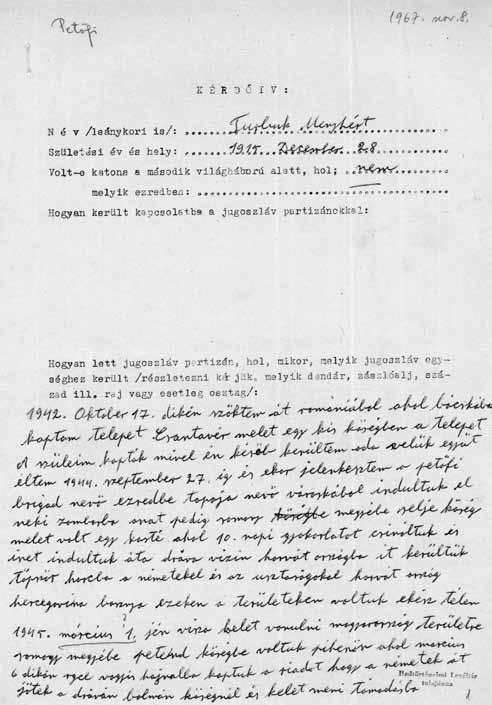 Petőfi
1967. nov. 8.
KÉRDŐIV:
Név /leánykori is/: Menyhért
Születési év és hely: 1925 Dezember 28
Volt-e katona a második világháború alatt, hol; nem
melyik ezredben:
Hogyan került kapcsolatba a jugoszláv partizánokkal:
Hogyan lett jugoszláv partizán, hol, mikor, melyik jugoszláv egy-
séghez került /részletezni kérjük, melyik dandár, zászlóalj, szá-
zad ill. raj vagy esetleg osztag/:
1942. Oktober 17. dikén szöktem át romániából ahol bácskába
kaptam telepet Csantavér melet egy kis köségben a telepet
A szüleim kapták mivel én késöb kerültem oda velük egjüt
éltem 1944. szeptember 27. ig és ekor jelenkeztem a petőfi
brigad nevö ezredbe topoja nevö városkából indultuk el
neki zomborba onat pedig somogy megjébe selje köség
melet volt egy kasté ahol 10. napi gyokorlatot csinoltuk és
inet indultuk áta dráva vizin horvát országba it kerültük
töpsör harcba a németekel és az usztaságokal horvát orság
hercegovina baranya ezeken a területeken voltuk ekész telen
1945. március 1. jén visa kelet vonulni magyarország területre
somogy megjébe petehnd köségbe voltuk pihenön ahol marcius
6 dikán regel vagyis hajnalba kaptuk a riadot hogy a németek át
jötek a dráván bolmán köségnél és kelet meni támadásba
Hadtörténelmi Levéltár
tulajdona
1